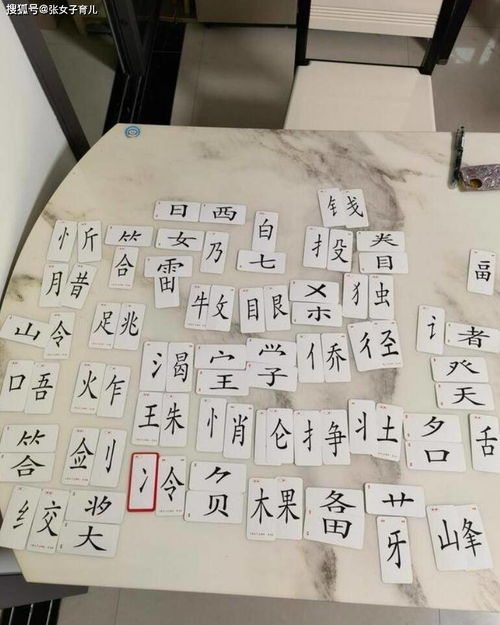 搜狐号@张女子育儿
日 西 钱
忄 斤 ⺮ 合 女 乃 白 七 扌 殳 类 目
月 昔 雷 福
山 令 足 兆 牛 攵 目 艮 㐅 朩 犭 虫 讠 者
口 吾 火 乍 氵 曷 宀 王 子 亻 乔 彳 癶 天
王 朱 忄 肖 仑 扌 争 土 夕 口 舌
⺮ 合 刂 氵 令 贝
纟 交 大 木 果 备 艹 牙 山 峰